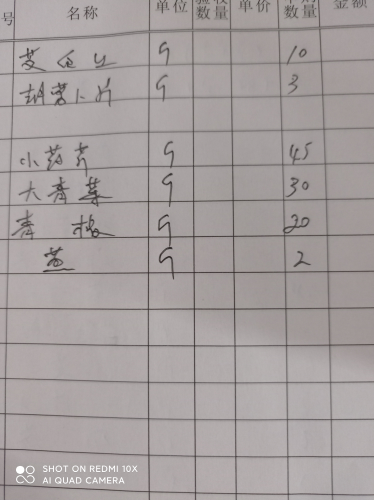 号 名称 单位 验收数量 单价 数量 金额
G 10
胡萝卜片 G 3
小药芹 G 45
大青菜 G 30
青 G 20
G 2
SHOT ON REDMI 10X
AI QUAD CAMERA